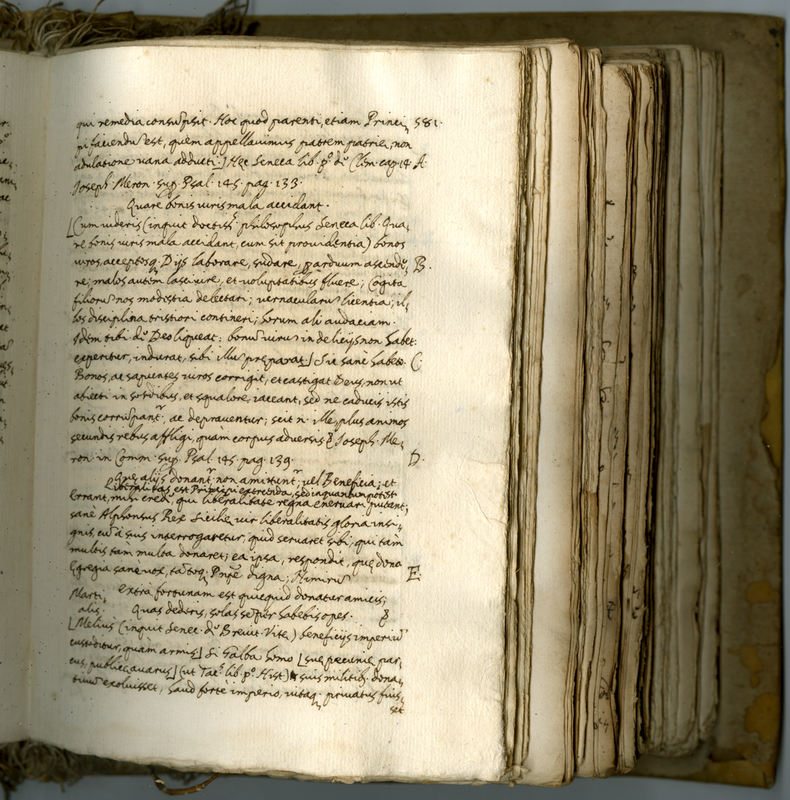 qui remedia consūpsit. Hoc quod parenti, etiam Princi, 581.
pi faciendū est, quem appellavimus patrem patriæ, non
adulatione vana adducti.] Hęc Seneca lib. pº. de Clem. cap. 14. A.
Joseph. Meron. sup. Psal. 145. pag. 133.
Quare bonis viris mala accidant.
[Cum videris (inquit doctiss. philosophus Seneca lib. Qua,
re bonis viris mala accidant, cum sit providentia) bonos
viros, acceptosq. Dijs laborare, sudare, p arduum ascende, B.
re; malos autem lascivire, et voluptatibus fluere; Cogita
filiorū nos modestia delectari; vernacularū licentia; il,
los disciplina tristiori contineri; horum ali audaciam.
Idem tibi de Deo liqueat: bonū virū in delicijs non habet:
experitur, indurat, sibi illū preparat.] Sic sanè habete. C.
Bonos, ac sapientes viros corrigit, et castigat Deus, non ut
abiecti in sordibus, et squalore, iaceant, sed ne caducis istis
bonis corrūpant, ac depraventur; scit n. Ille, plus animos
secundis rebus affligi, quam corpus adversis. Joseph. Me,
ron. in Comm. sup. Psal. 145. pag. 139. D.
Quę alijs donant non amittent, vel Beneficia; et
liberalitas est Principi exercenda, sed in quantum potest
Errant, mihi crede, qui liberalitate regna enervari putent;
sanè Alphonsus Rex Sicilię, vir liberalitatis gloria insi,
gnis, cū à suis interrogaretur, quid servaret sibi, qui tàm
multis tàm multa donaret; ea ipsa, respondit, quę dona
Egregia sanè vox, tātoq. Pncipe digna; Nimirū E.
Marti, Extra fortunam est quicquid donatur amicis,
alis. Quas dederis, solas semper habebis opes.
[Melius (inquit Senec. de Brevit. Vitę) beneficijs imperiū
custoditur, quam armis] Si Galba homo [suę pecunię par,
cus, publicę avarus] (ut Tac. lib. pº. Hist) suis militib. dona,
tivū exolvisset, haud fortè imperio, vitaq. privatus fuis,
set